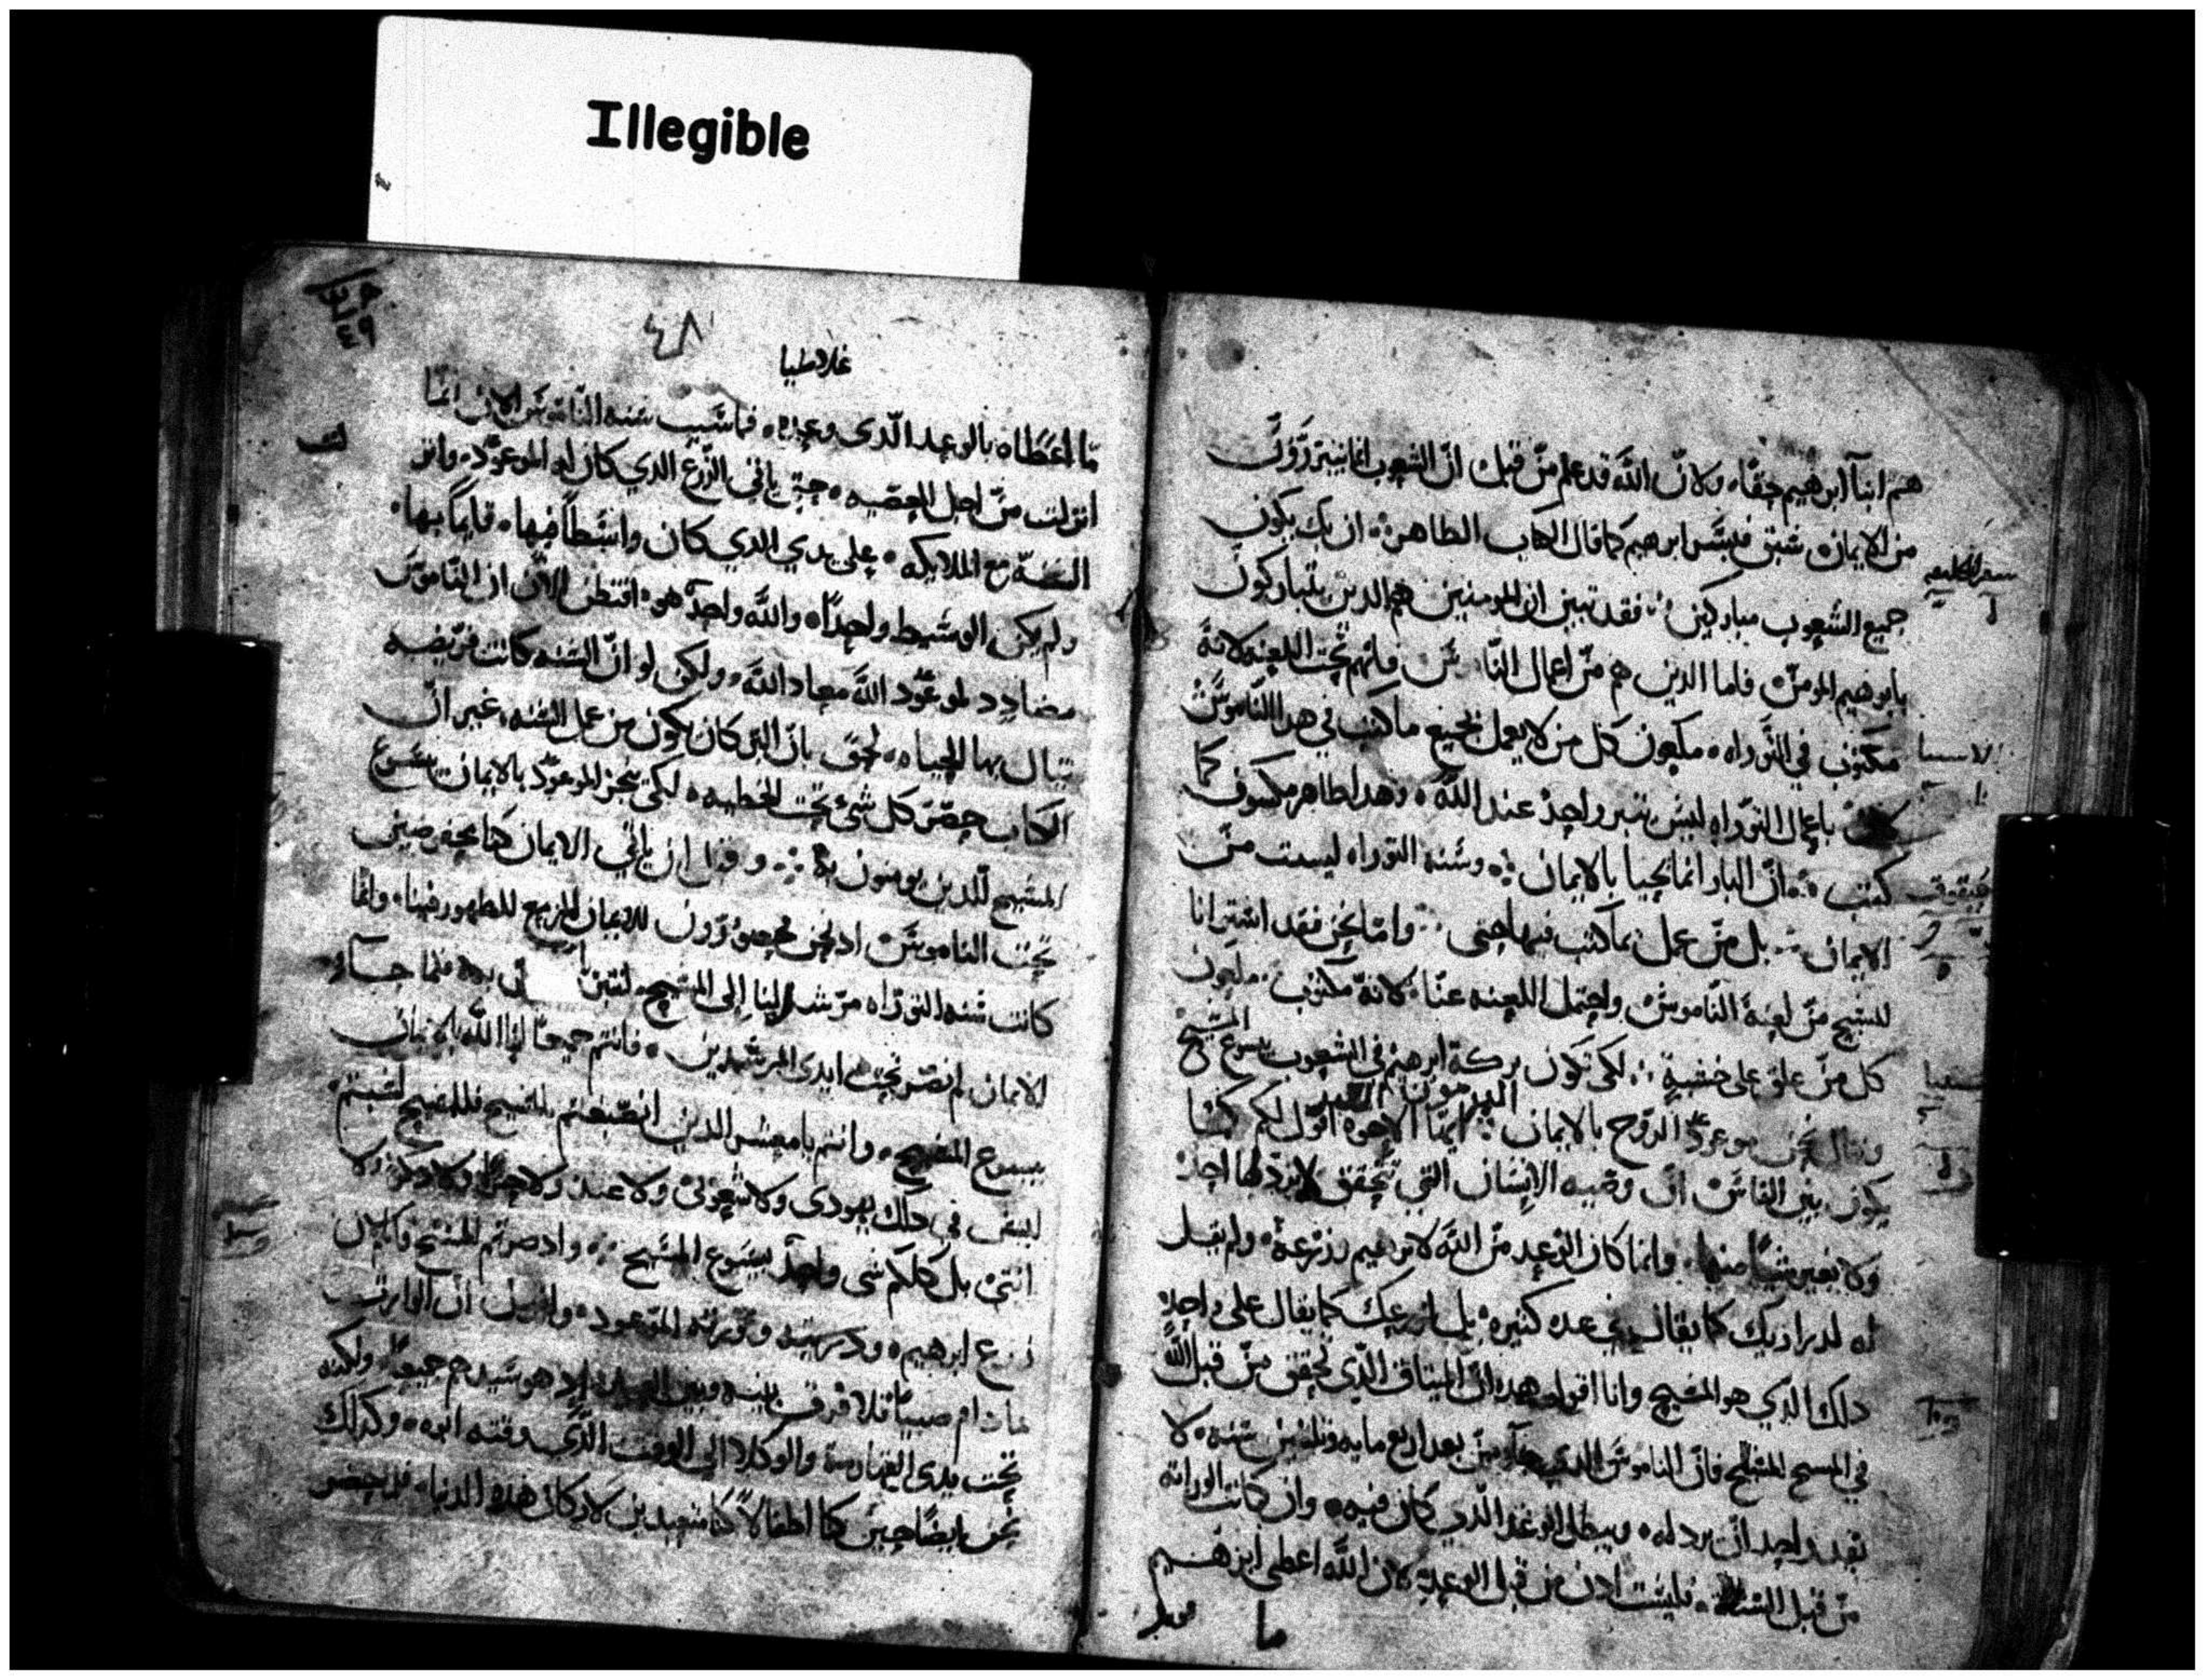 Illegible
هم ابنآ ابرهيم حقا، ولان الله قد علم من قبل ان الشعوب انما يتبررون
من الايمان سبق فبشر ابرهيم كما قال الكتاب الطاهر ان بك يكون
جميع الشعوب مباركين فقد تبين ان المومنين هم الدين يتباركون
بابرهيم المومن فاما الدين هم من اعمال النا فانهم تحت اللعنه لانه
مكتوب في التوراه ملعون كل من لا يعمل بجميع ما كتب في هدا الناموس
باعمال التوراه ليس يتبرر واحد عند الله وهدا ظاهر مكسوف كما
كتب ان البار انما يحيا بالايمان وسنه التوراه ليست من
الايمان بل من عمل بما كتب فيها احيى واما نحن فقد اشترانا
المسيح من لعنة الناموس واحتمل اللعنه عنا لانه مكتوب ملعون
كل من علق على خشبة لكي تكون بركة ابرهيم في الشعوب بيسوع المسيح
وننال نحن موعود الروح بالايمان ايها الاخوه اقول لكم كما
يكون بين الناس ان وصيه الانسان التي تحقق لا يردلها احد
ولا يغير شيا منها وانما كان الوعد من الله لابرهيم وزرعه ولم يقل
له لدراريك كما يقال عده كثيره بل لزرعك كما يقال على واحد
دلك الدي هو المسيح وانا اقول هده ان الميتاق الذي تحقق من قبل الله
في المسيح فان الناموس الدي جآ من بعد اربع مايه وثلثين سنه لا
يقدر احد ان يرد له ويبطل الوعد الذي كان فيه وان كانت الوراثه
من قبل السنه فليست ادن من قبل الوعد لان الله اعطى ابرهيم
ما
٤٨
غلاطيا
ما اعطاه بالوعد الذي وعده فما سبب سنه الناموس الان انما
انزلت من اجل المعصيه حتى ياتي الزرع الدي كان له الموعود وانز
السنة مع الملايكه على يدي الدي كان واسطا فيها قايما بها
ولم يكن الوسيط واحدا والله واحد هو افتظن الان ان الناموس
مضادد لموعود الله معاد الله ولكن لو ان السنه كانت فريضه
ينال بها الحياه لحق بان البر كان يكون من عمل السنه غير ان
الكتاب حصر كل شي تحت الخطيه لكي ينجز الموعود بالايمان بيسوع
المسيح للدين يومنون به وقبل ان ياتي الايمان كنا محفوضين
تحت الناموس اد نحن محصورون للايمان المزمع للظهور فينا وانما
كانت سنه التوراه مرشدا لنا الى المسيح لنتبرر به فلما جاء
الايمان لم نصر تحت ايدي المرشدين فانتم جميعا ابنا الله بالايمان
بيسوع المسيح وانتم يا معشر الدين انصبغتم بالمسيح فللمسيح لبستم
ليس في دلك يهودي ولا شعوبي ولا عبد ولا حر ولا دكر ولا
انثى بل كلكم شي واحد بيسوع المسيح واد صرتم للمسيح فالان
زرع ابرهيم وورثة الموعود واقول ان الوارث
ما دام صبيا فلا فرق بينه وبين العبيد اد هو سيدهم جميعا ولكنه
تحت يدي القهارمة والوكلا الى الوقت الذي وقته ابوه وكدلك
نحن ايضا حين كنا اطفالا كنا متعبدين لاركان هده الدنيا فلما حضر